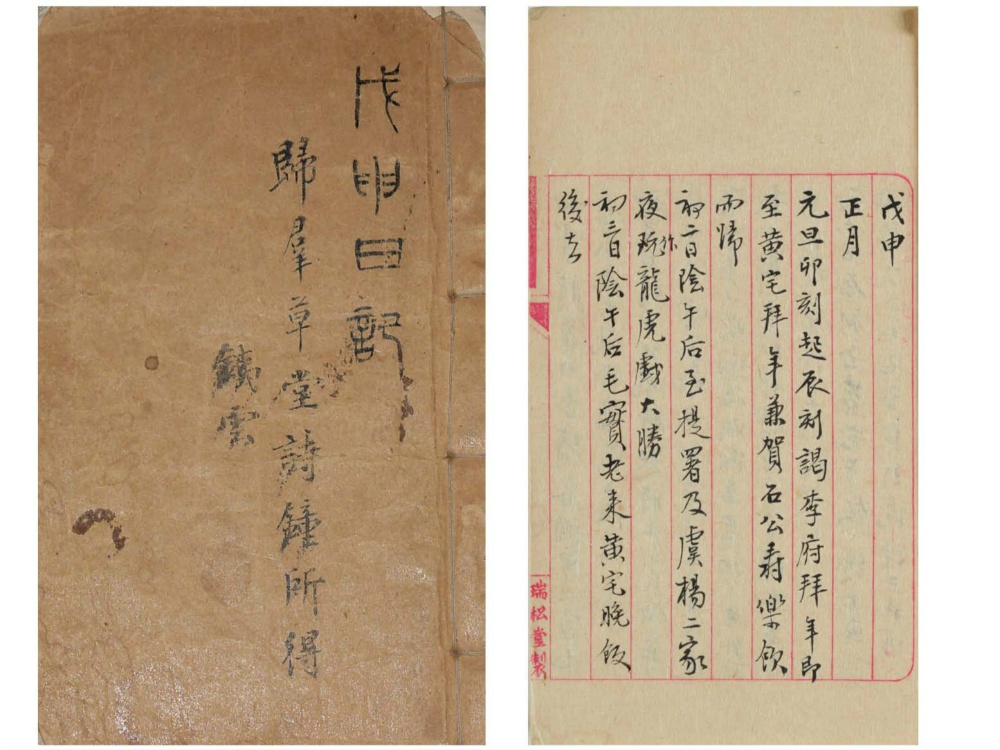 戊申日記
歸羣草堂詩鐘所得
鐵雲
戊申
正月
元旦卯刻起辰刻謁李府拜年即
至黃宅拜年兼賀石公壽樂飲
而歸
初二日陰午后至提署及虞楊二家
夜玩龍虎戲大勝
初三日陰午后毛實老來黃宅晚飯
後去
瑞松堂製